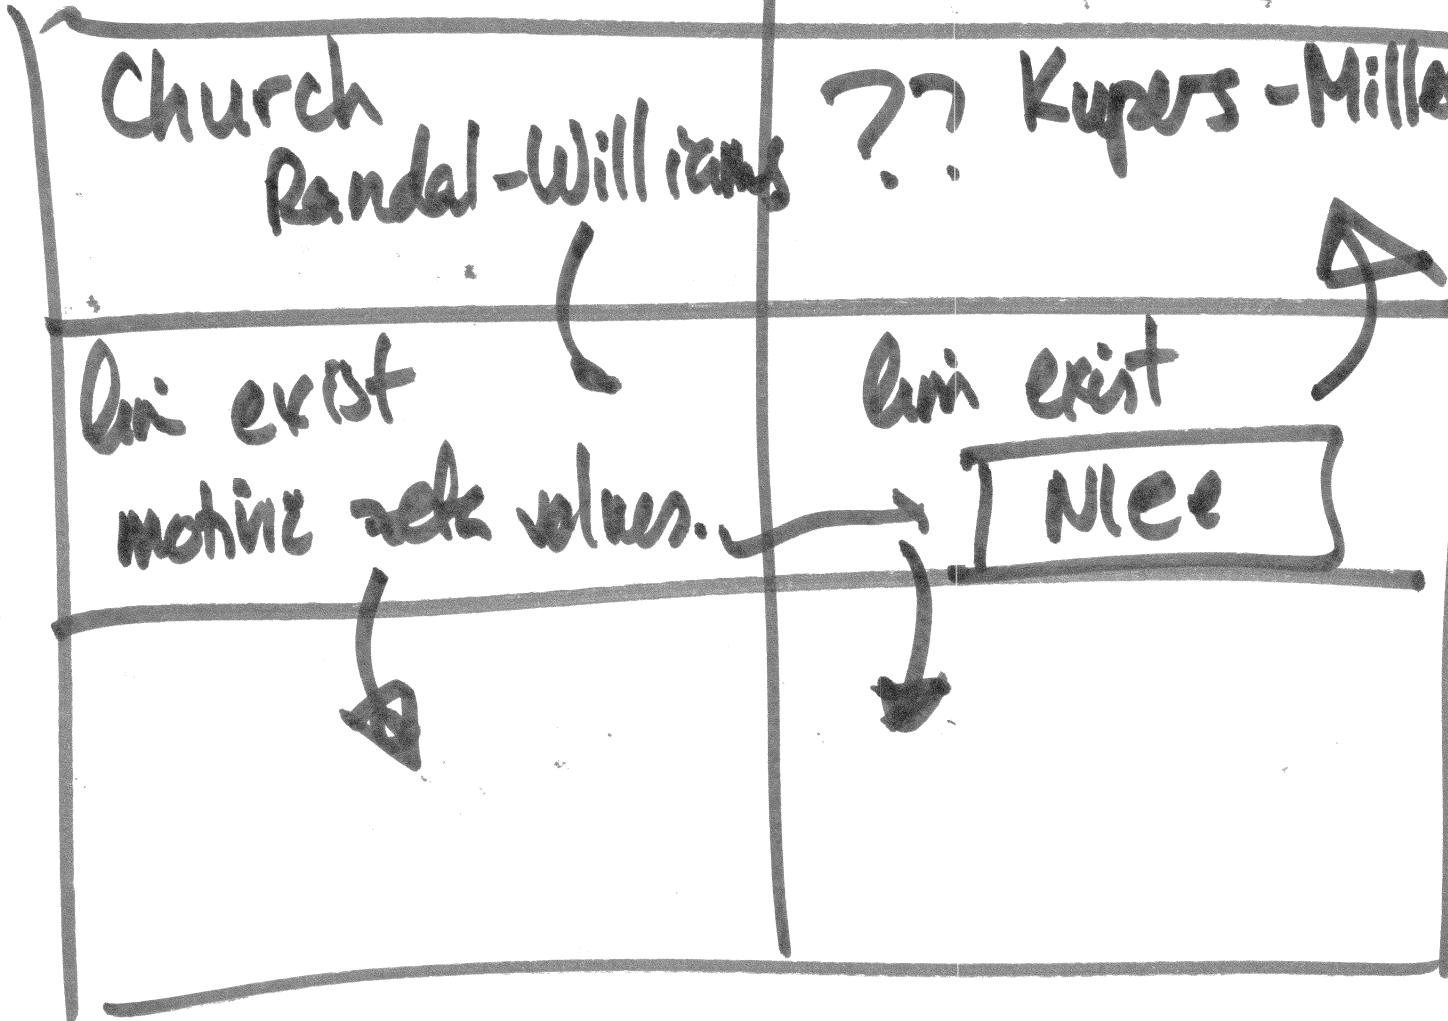 Church
Randal-Williams
?? Kupers-Mill
lim exist
motivic zeta values.
lim exist
Nice